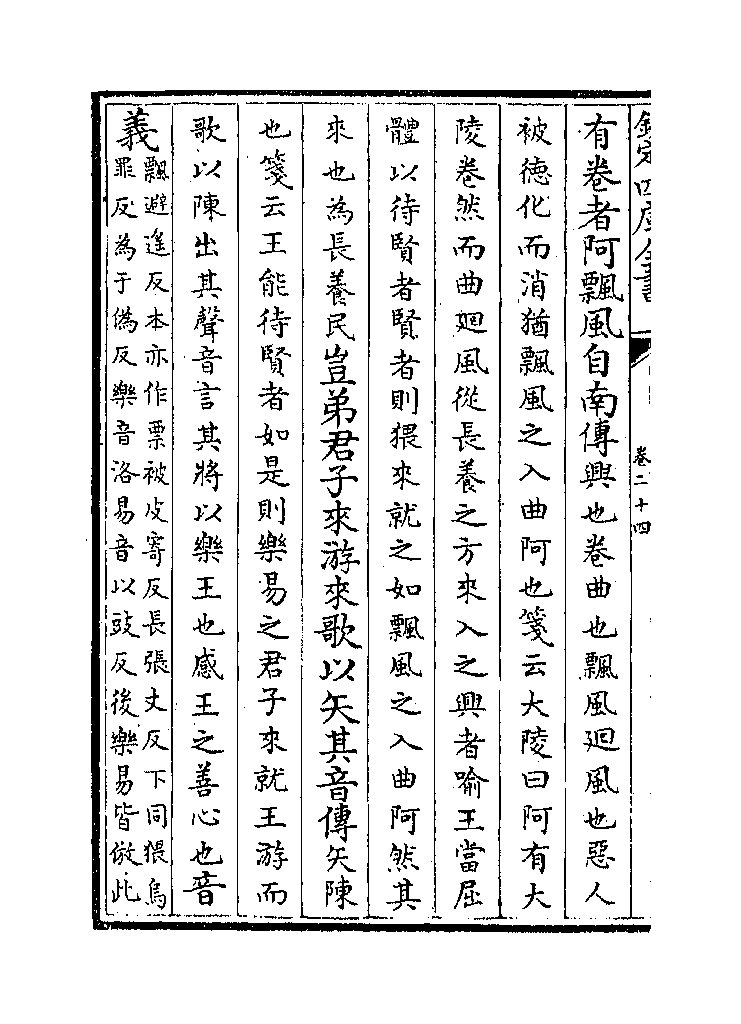 欽定四庫全書
卷二十四
有卷者阿飄風自南傳興也卷曲也飄風廻風也惡人
被德化而消猶飄風之入曲阿也箋云大陵曰阿有大
陵卷然而曲廻風從長養之方來入之興者喻王當屈
體以待賢者賢者則猥來就之如飄風之入曲阿然其
來也為長養民豈弟君子來游來歌以矢其音傳矢陳
也箋云王能待賢者如是則樂易之君子來就王游而
歌以陳出其聲音言其將以樂王也感王之善心也音
義
飄避遙反本亦作票被皮寄反長張丈反下同猥烏
罪反為于偽反樂音洛易音以豉反後樂易皆倣此